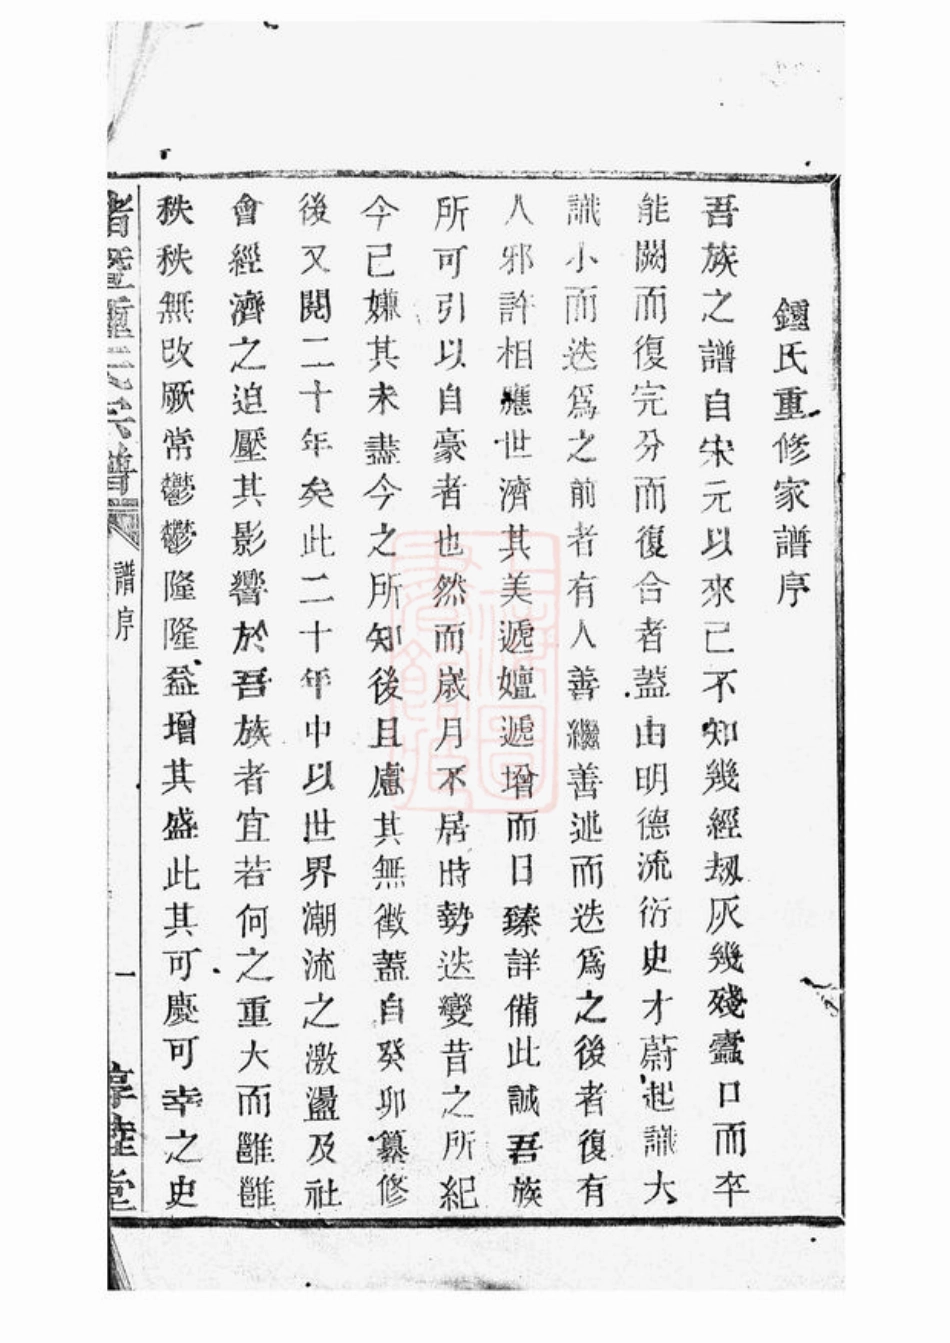 鍾氏重修家譜序
吾族之譜自宋元以來己不知幾經刼灰幾殘蠹口而卒
能闕而復完分而復合者蓋由明德流衍史才蔚起識大
識小而迭爲之前者有人善繼善述而迭爲之後者復有
人邪許相應世濟其美遞嬗遞增而日臻詳備此誠吾族
所可引以自豪者也然而歲月不居時勢迭變昔之所紀
今已嫌其未盡今之所知後且慮其無徵蓋自癸卯纂修
後又閱二十年矣此二十年中以世界潮流之激盪及社
會經濟之迫壓其影響於吾族者宜若何之重大而雝雝
秩秩無改厥常鬱鬱隆隆益增其盛此其可慶可幸之史
宗譜
譜序
一
惇睦堂